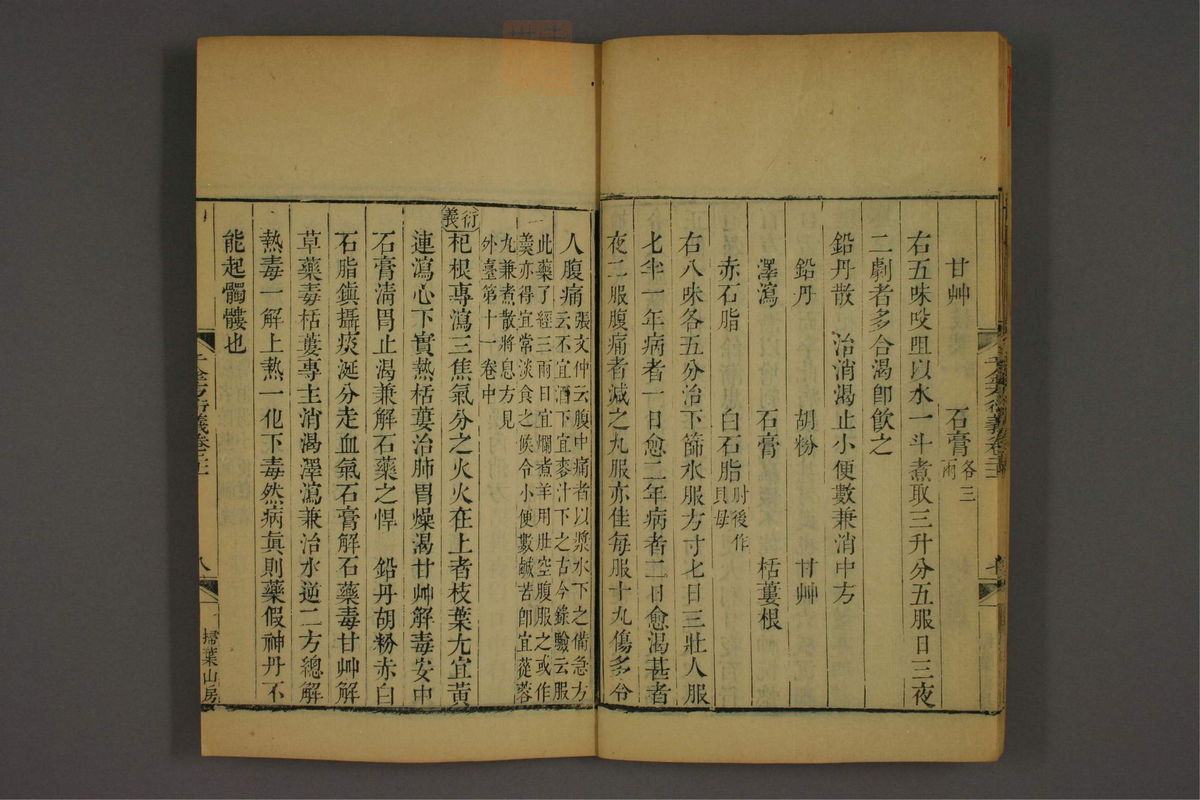 甘艸 石膏各三兩
右五味㕮咀以水一斗煮取三升分五服日三夜
二劇者多合渴卽飮之
鉛丹散 治消渴止小便數兼消中方
鉛丹 胡粉 甘艸
澤瀉 石膏 栝蔞根
赤石脂 白石脂肘後作貝母
右八味各五分治下篩水服方寸匕日三壯人服
匕半一年病者一日愈二年病者二日愈渴甚者
夜二服腹痛者減之丸服亦佳每服十丸傷多令
人腹痛張文仲云腹中痛者以漿水下之備急方
云不宜酒下宜麥汁下之古今錄驗云服
此藥了經三兩日宜爛煮羊用肚空腹服之或作
羹亦得宜常淡食之候令小便數鹹苦卽宜蓯蓉
丸兼煮散將息方見
外臺第十一卷中
衍義
杞根專瀉三焦氣分之火火在上者枝葉尤宜黃
連瀉心下實熱栝蔞治肺胃燥渴甘艸解毒安中
石膏淸胃止渴兼解石藥之悍 鉛丹胡粉赤白
石脂鎭攝痰涎分走血氣石膏解石藥毒甘艸解
草藥毒栝蔞專主消渴澤瀉兼治水逆二方總解
熱毒一解上熱一化下毒然病眞則藥假神丹不
能起髑髏也
八
掃葉山房